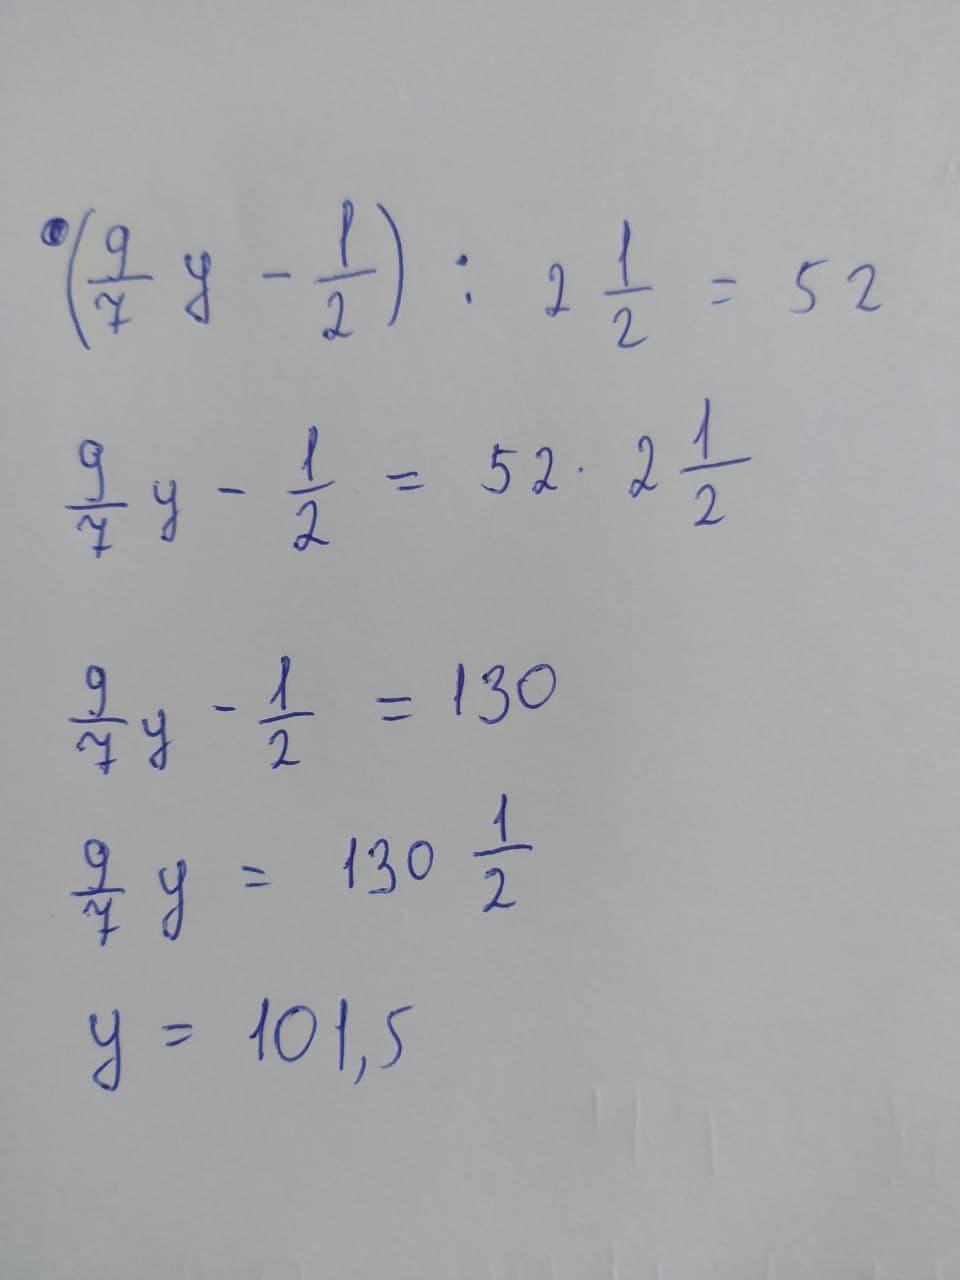 (9/7 y - 1/2) : 2 1/2 = 52
9/7 y - 1/2 = 52 · 2 1/2
9/7 y - 1/2 = 130
9/7 y = 130 1/2
y = 101,5